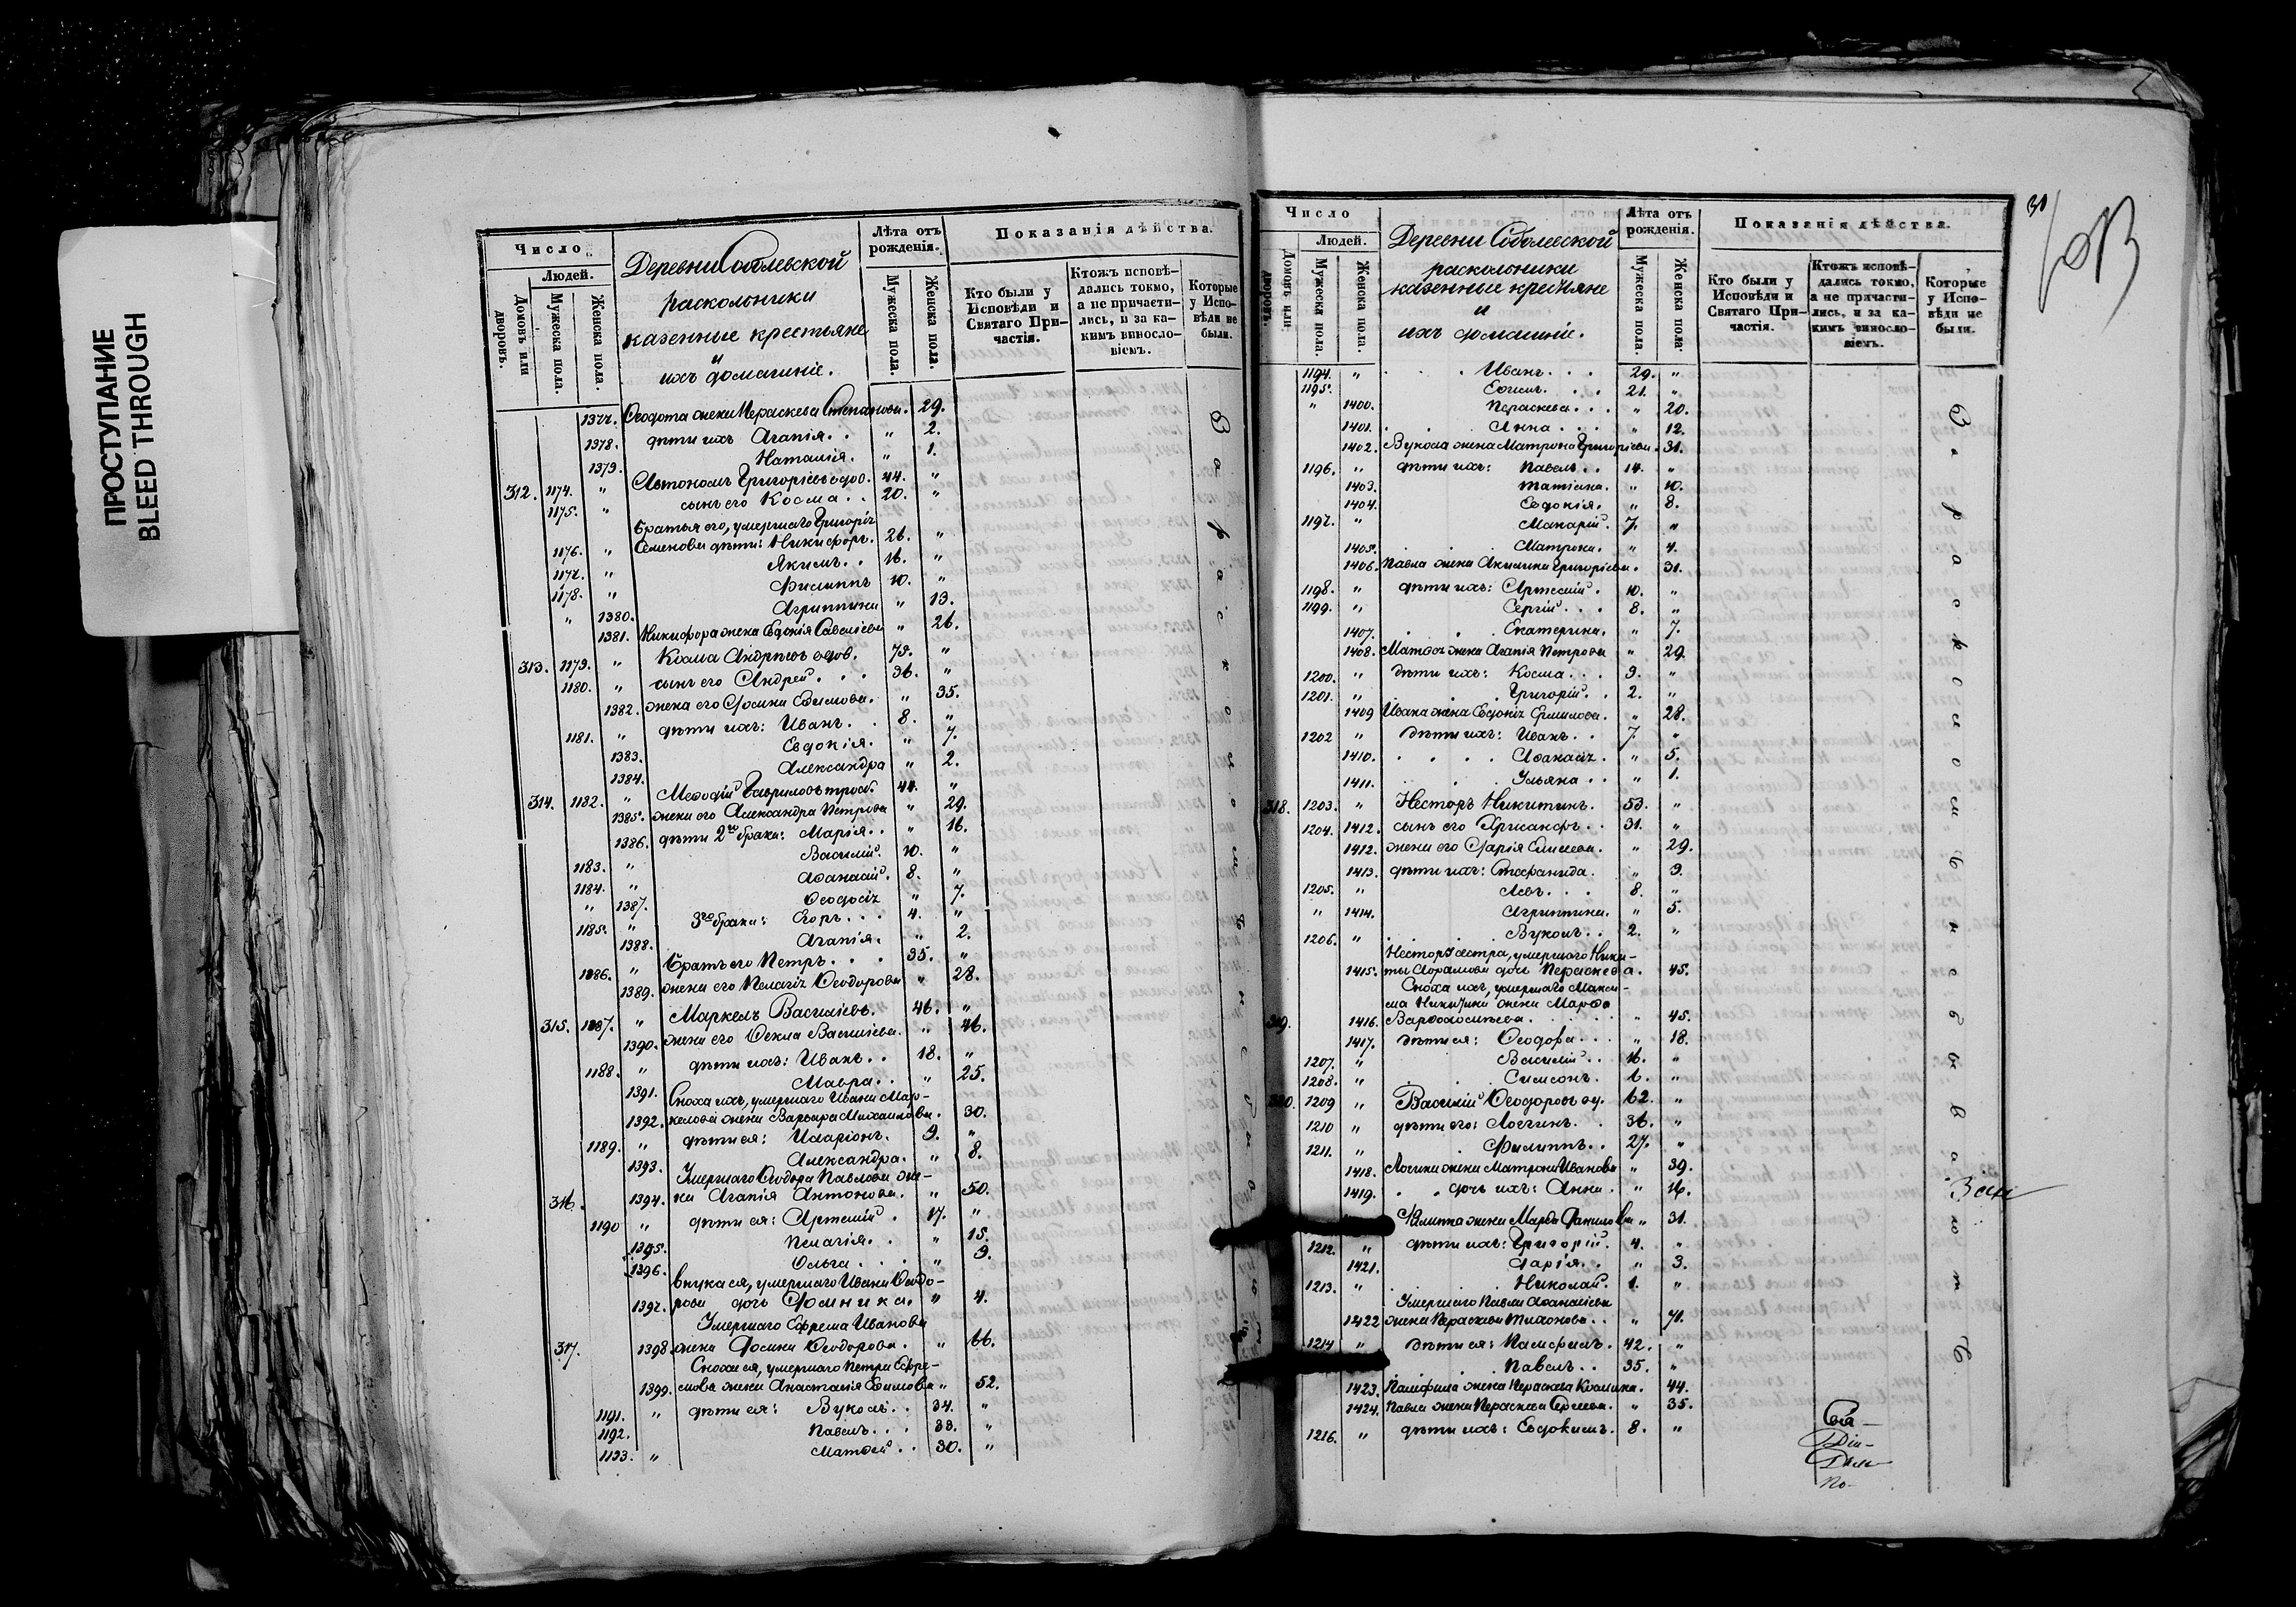 ПРОСТУПАНИЕ
BLEED THROUGH
Число
Людей.
Домовъ или дворовъ.
Мужеска пола
Женска пола.
Деревни Соболевской
раскольники
казенные крестьяне
и
ихъ домашніе.
Лѣта отъ рожденія.
Мужеска пола.
Женска пола.
Показанія дѣйства.
Кто были у Исповѣди и Святаго Причастія.
Ктожъ исповѣдались токмо, а не причастились, и за какимъ винословіемъ.
Которые у Исповѣди не были.
1377. Ѳеодота жена Параскева Степанова. 29.
1378. дѣти ихъ Агапія. . " 2.
1379. Наталія. " 1.
312. 1174. " Автономъ Григорьевъ вдов. 44. "
1175. " сынъ его Косма . . 20. "
Братья его, умершаго Григорія
1176. " Семенова дѣти: Никифоръ. 26. "
1177. " Якимъ. . 16. "
1178. " Филиппъ 10. "
" 1380. Агриппина " 13.
1381. Никифора жена Евдокія Савельева " 26.
313. 1179. " Косма Андреевъ вдов. 79. "
1180. " сынъ его Андрей . . . 36. "
1382. жена его Домна Ефимова. " 35.
1181. " дѣти ихъ: Иванъ. . 8. "
1383. Евдокія. " 7.
1384. Александра " 2.
314. 1182. " Меѳодій Гавриловъ троеб. 44. "
1385. жена его Александра Петрова " 29.
1386. дѣти 2го брака: Марія. . " 16.
1183. " Василій. 10. "
1184. " Аѳанасій. 8. "
" 1387. Ѳеодосія " 7.
1185. " 3го брака: Егоръ . . . 4. "
1388. Агапія. " 2.
1186. " Братъ его Петръ. . . 35. "
1389. жена его Пелагія Ѳеодорова " 28.
315. 1187. " Маркелъ Василіевъ. 46. "
1390. жена его Ѳекла Василіева. " 46.
1188. " дѣти ихъ: Иванъ. . 18. "
1391. Мавра. . " 25.
Сноха ихъ, умершаго Ивана Мар-
1392. келова жена Варвара Михаилова. 30.
1189. " дѣти ея: Иларіонъ. 9. "
1393. Александра. " 8.
Умершаго Ѳеодора Павлова же-
316. 1394. на Агапія Антонова. " 50.
1190 " дѣти ея: Артемій . 17. "
1395. Пелагія. . " 15.
1396. Ольга . . . " 9.
внука ея, умершаго Ивана Ѳеодо-
1397. рова дочь Домника. " 4.
Умершаго Ефрема Иванова
317. 1398. жена Домна Ѳеодорова. " 66.
Сноха ея, умершаго Петра Ефре-
1399. мова жена Анастасія Ефимова " 52.
1191. " дѣти ея: Вуколъ. . 34. "
1192. Павелъ. . . 33. "
1193. " Матѳей . . 30. "
За расколомъ не быв
Число
Людей.
Домовъ или дворовъ.
Мужеска пола.
Женска пола.
Деревни Соболевской
раскольники
казенные крестьяне
и
ихъ домашніе.
Лѣта отъ рожденія.
Мужеска пола.
Женска пола.
Показанія дѣйства.
Кто были у Исповѣди и Святаго Причастія.
Ктожъ исповѣдались токмо, а не причастились, и за какимъ винословіемъ.
Которые у Исповѣди не были.
1194. " . . . Иванъ. . . 29. "
1195. Ефимъ. . . 21. "
" 1400. Параскева. . . " 20.
1401. Анна . . . " 12.
1402. Вукола жена Матрона Григорьева. 31.
1196. " дѣти ихъ: Павелъ . . 14. "
1403. Татіана. " 10.
1404. Евдокія. " 8.
1197. " Макарій. 7. "
1405. Матрона. " 4.
1406. Павла жена Акилина Григорьева. 31.
1198. " дѣти ихъ: Артемій . 10. "
1199. " Сергій . . . 8. "
1407. Екатерина. " 7.
1408. Матѳея жена Агапія Петрова " 29.
1200. " дѣти ихъ: Косма . . . 9. "
1201. " Григорій. . 2. "
1409 Ивана жена Евдокія Ермилова. " 28.
1202 " дѣти ихъ: Иванъ. . 7. "
1410. . . . . " 5.
1411. Ульяна . . " 1.
318. 1203. " Несторъ Никитинъ. 53. "
1204. 1412. сынъ его Хрисанфъ . . 31. "
1412. жена его Дарія Елисеева. " 29.
1413. дѣти ихъ: Стефанида. " 9.
1205. " Левъ. . . 8. "
" 1414. Агриппина. " 5.
1206. " Вуколъ. . 2. "
Нестора сестра, умершаго Ники-
1415. ты дочь Параскева. 45.
Сноха ихъ, умершаго Макси-
ма Никитина жена Марѳа
319. 1416. Варѳоломеева. " 45.
1417. дѣти ея: Ѳеодора . . . " 18.
1207. " Василій. . 16. "
1208. " Симеонъ. 6. "
320. 1209 " Василій Ѳеодоровъ 62. "
1210 " дѣти его: Логгинъ. . 36. "
1211. " Филиппъ. . 27. "
1418. Логгина жена Матрона Иванова " 39.
1419. . . дочь ихъ: Анна . " 16.
Филиппа жена Марѳа Данилова " 31.
1212. " дѣти ихъ: Григорій. 4. "
1421. Дарія. . " 3.
1213. " Николай. 1. "
Умершаго Павла Аѳанасіева
1422 жена Параскева Тихонова. . " 71.
1214 " дѣти ея: Памфилъ. 42. "
Павелъ. . 35. "
1423. Памфила жена Параскева Космина. 44.
1424. Павла жена Параскева Сергеева. " 35.
1216. " дѣти ихъ: Евдокимъ. 8. "